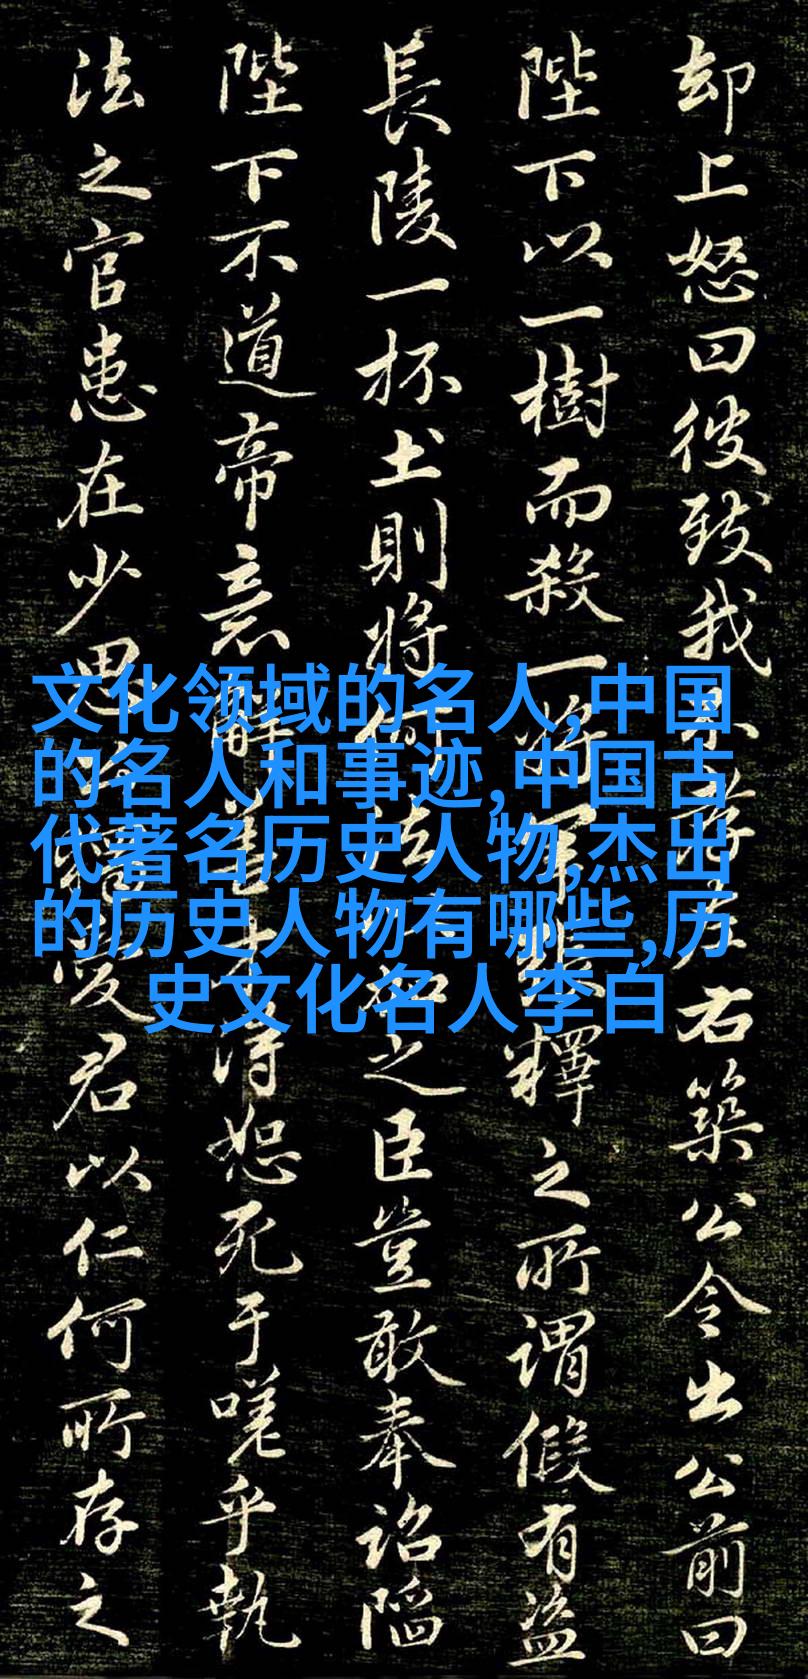 却上怒曰彼致我右築公令出公前曰
陛下以一樹而殺一将釋之所謂假有盜
長陵一抔土則将之臣豈敢奉詔陷
陛下不道帝意解得恕死于嗟乎執
法之官患在少恩愛君以仁何所存之
文化领域的名人,中国
的名人和事迹,中国古
代著名历史人物,杰出
的历史人物有哪些,历
史文化名人李白